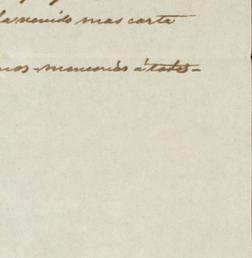 la venido mas carta
mos memorias á todos-